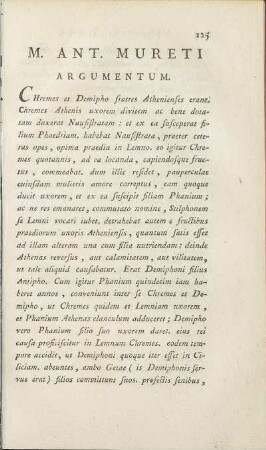 125
M. ANT. MURETI
ARGUMENTUM.
CHremes et Demipho fratres Athenienses erant.
Chremes Athenis uxorem divitem ac bene dota-
tam duxerat Nausistratam: et ex ea susceperat fi-
lium Phaedriam. habebat Nausistrata, praeter cete-
ras opes, opima praedia in Lemno. eo igitur Chre-
mes quotannis, ad ea locanda, capiendosque fruc-
tus, commeabat. dum illic residet, pauperculae
cuiusdam mulieris amore correptus, eam quoque
ducit uxorem, et ex ea suscipit filiam Phanium;
ac ne res emanaret, commutato nomine, Stilphonem
se Lemni vocari iubet. detrahebat autem e fructibus
praediorum uxoris Atheniensis, quantum satis esset
ad illam alteram una cum filia nutriendam: deinde
Athenas reversus, aut calamitatem, aut vilitatem,
ut tale aliquid causabatur. Erat Demiphoni filius
Antipho. Cum igitur Phanium quindecim iam ha-
beret annos, conveniunt inter se Chremes et De-
mipho, ut Chremes quidam et Lemniam uxorem,
et Phanium Athenas clanculum adduceret; Demipho
vero Phanium filio suo uxorem daret. eius rei
causa proficiscitur in Lemnum Chremes. eodem tem-
pore accidit, ut Demiphoni quoque iter esset in Ci-
liciam. abeuntes, ambo Getae (is Demiphonis ser-
vus erat) filios constituunt suos. profectis senibus,